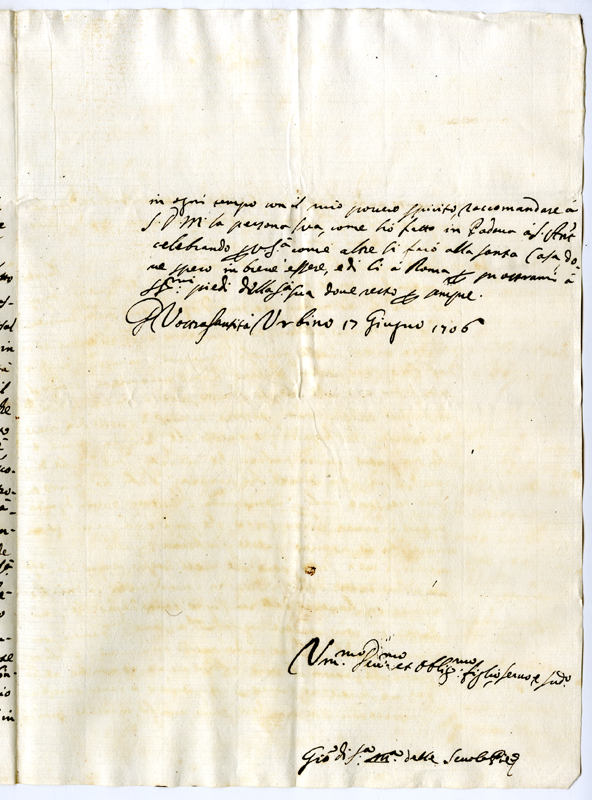 in ogni tempo con il mio povero spirito, raccomandare á
S. D. M. la persona sua, come hó fatto in Padova á S. Ant.
celebrando p V. S.tà come altre lì farò alla Santa Casa do-
ue spero in breue essere, e di lì á Roma p prostrarmi á
SS.mi piedi della S.tà sua doue resto p sempre.
Di Vostra Santità, Urbino 17 Giugno 1706
Um.mo Deu.mo et Oblig.mo figlio seruo e sud.o
Gio: di S.ta M.a delle Scuole Pie